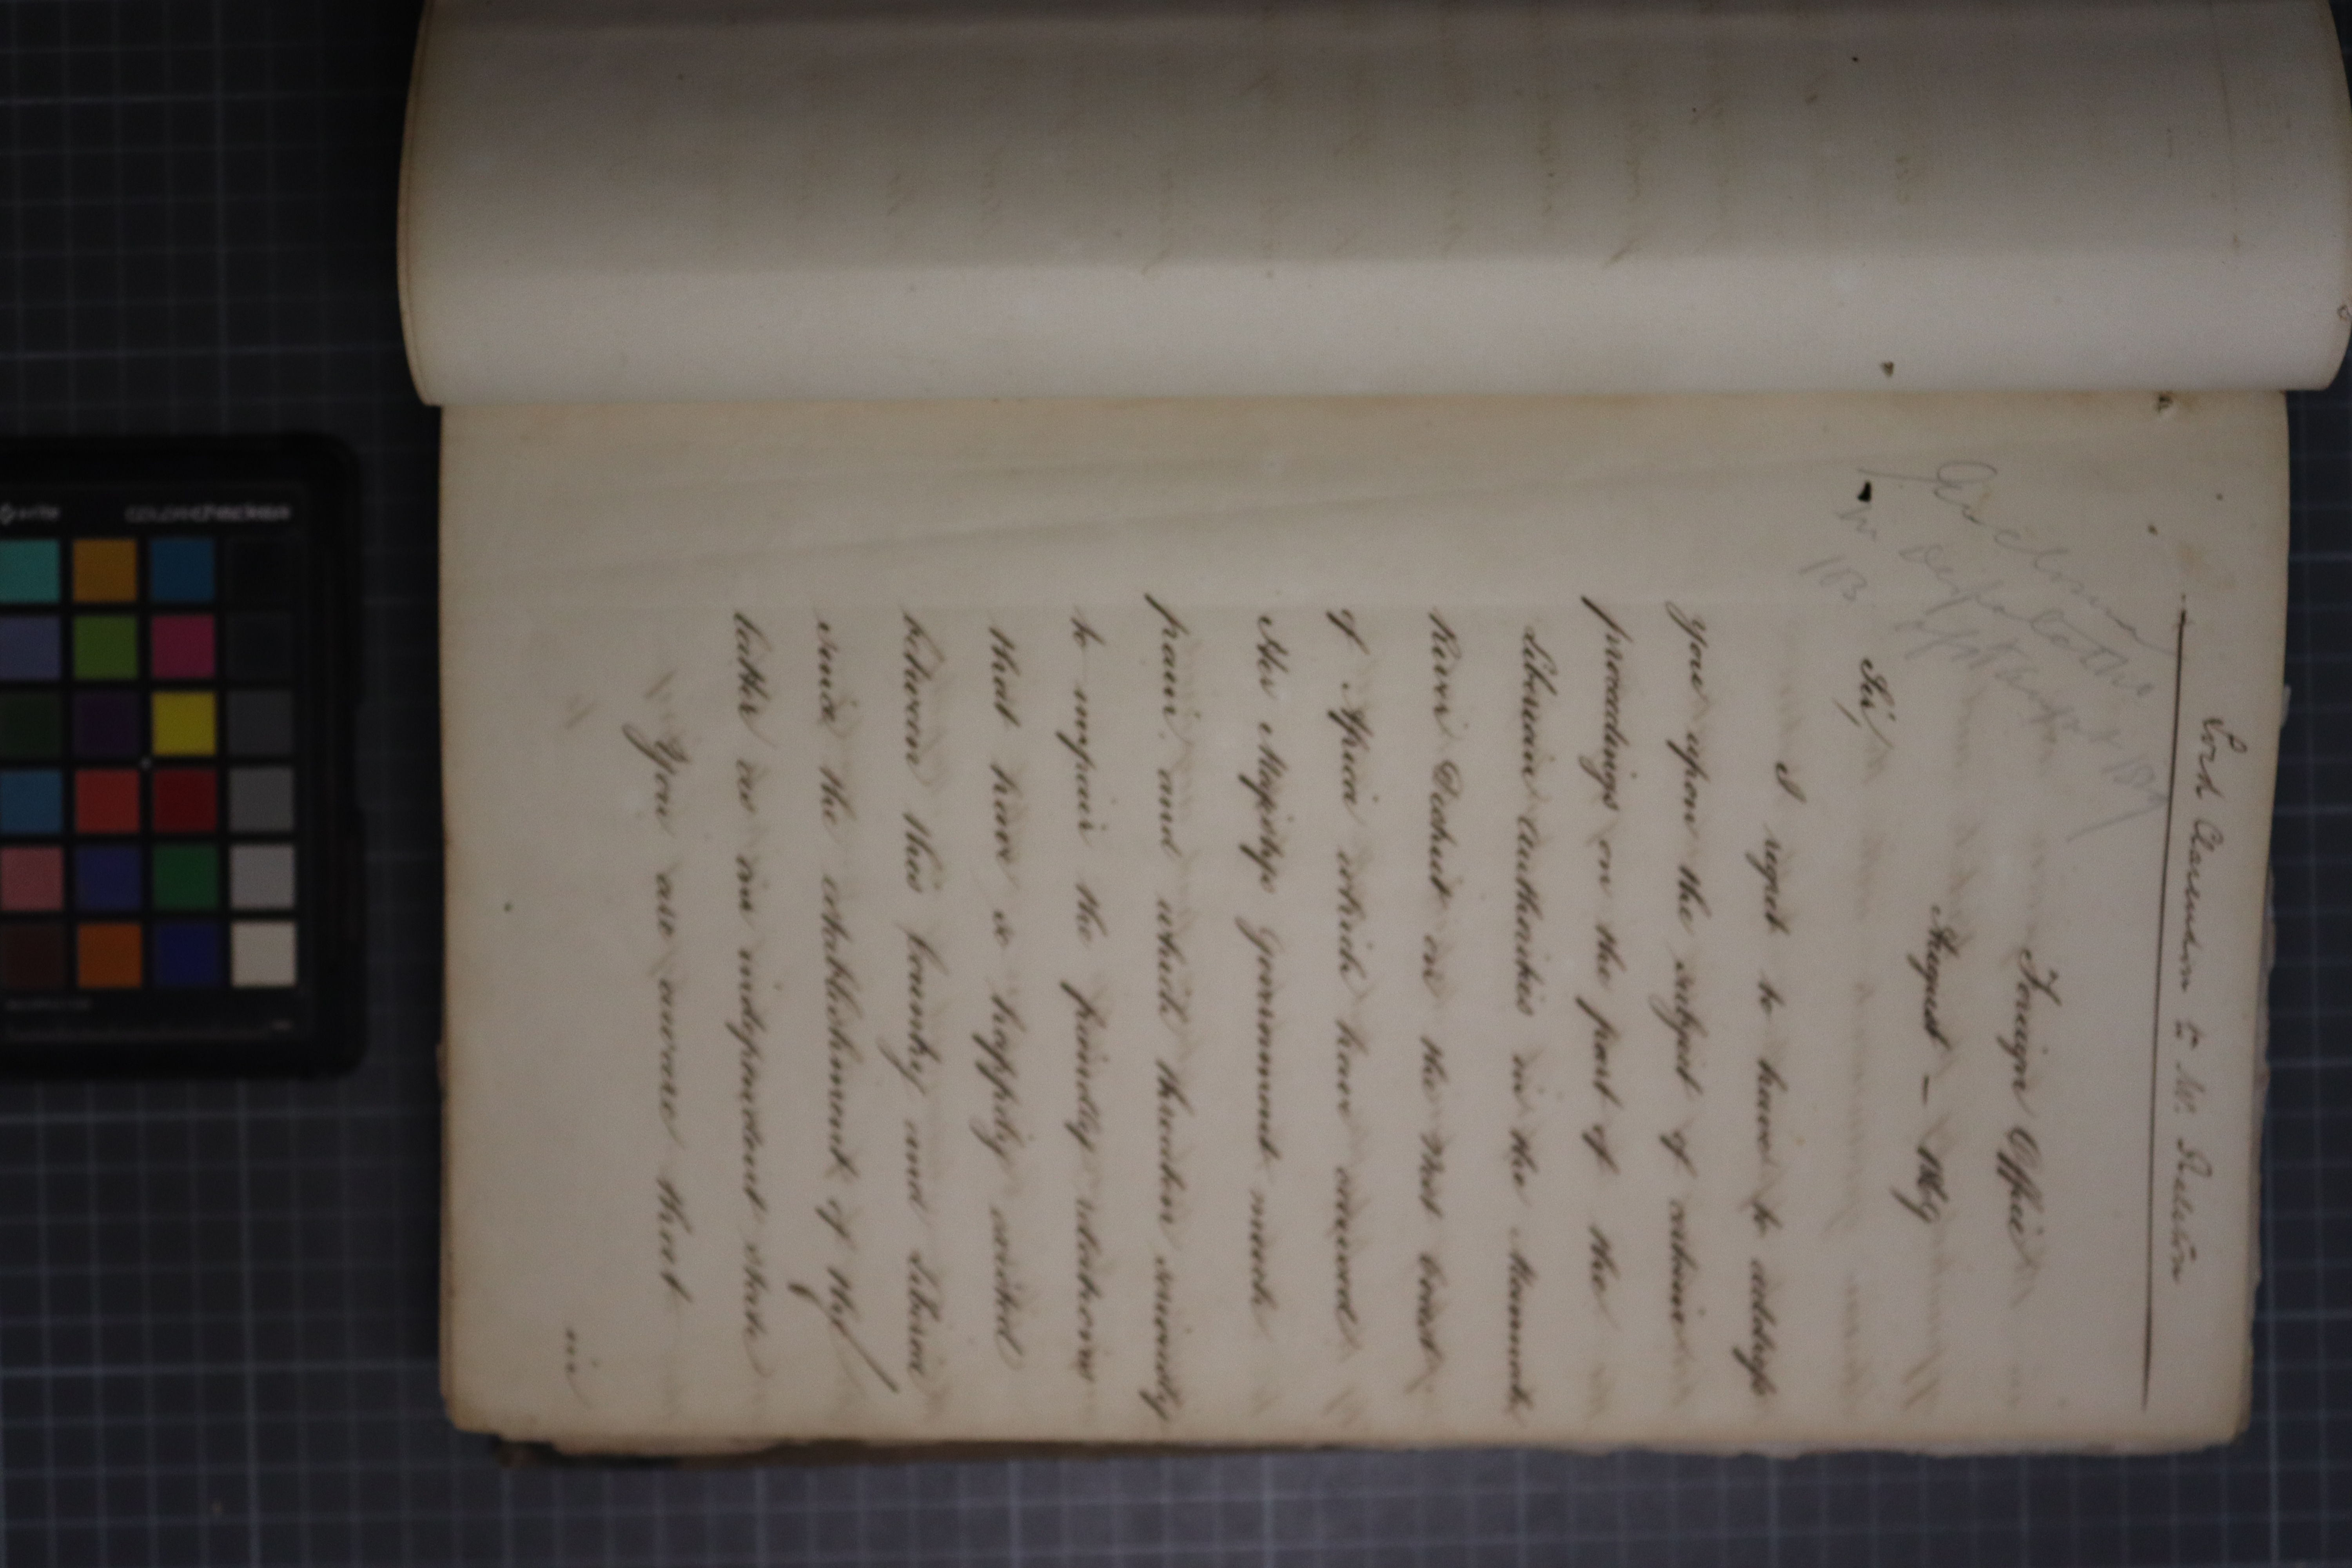 Lord Clarendon to Mr. Ralston
Foreign Office
August — 1869
Sir,
I regret to have to address
you upon the subject of certain
proceedings on the part of the
Liberian Authorities in the Mannah
River District on the West Coast
of Africa which have caused
Her Majesty's Government much
pain and which threaten seriously
to impair the friendly relations
that have so happily existed
between this Country and Liberia
since the establishment of the
latter as an independent state
You are aware that
in
colorchecker